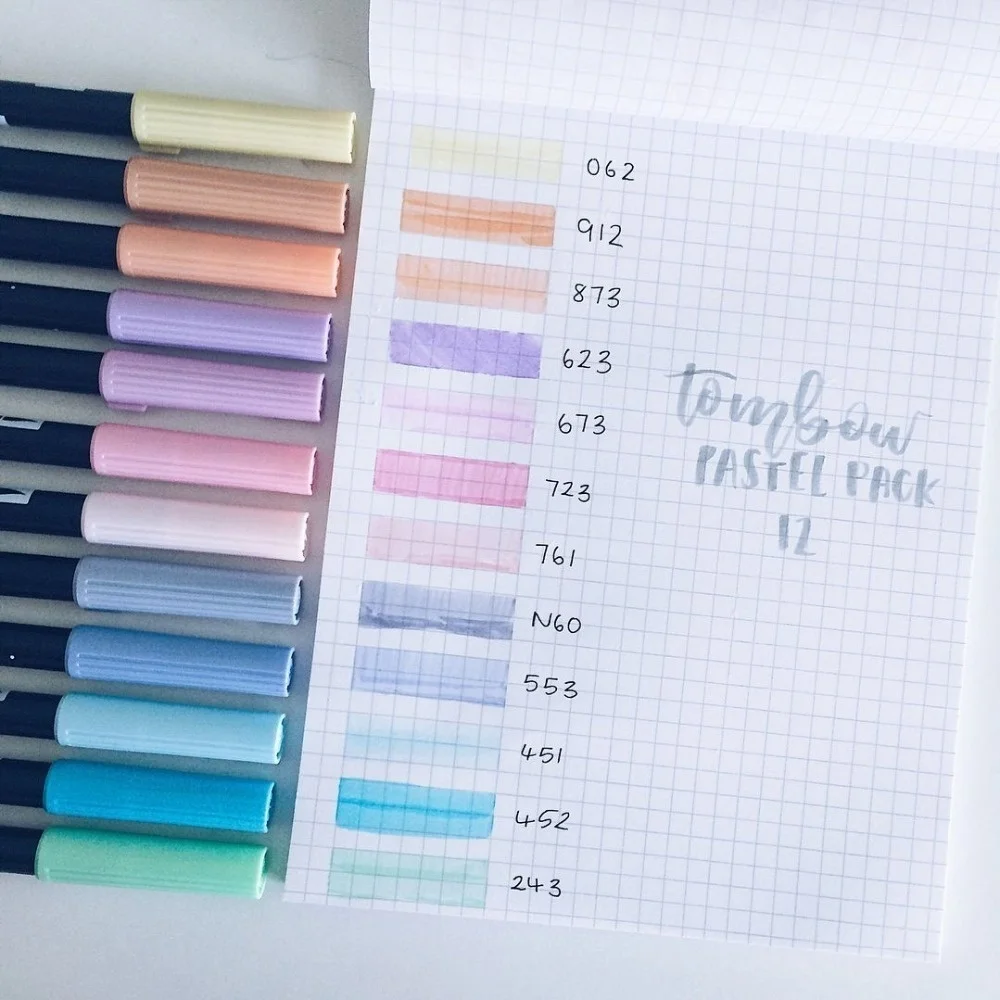 062
912
873
623
673
723
761
N60
553
451
452
243
tombow
PASTEL PACK
12